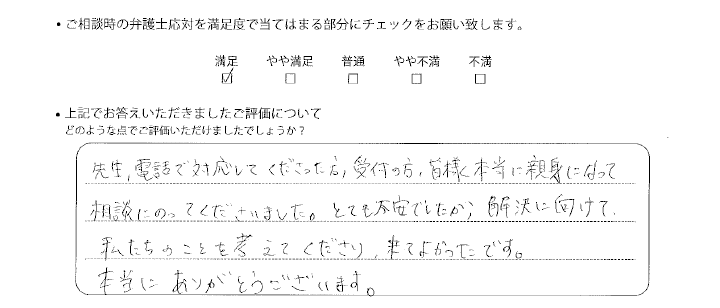 ・ご相談時の弁護士応対を満足度で当てはまる部分にチェックをお願い致します。
満足 やや満足 普通 やや不満 不満
☑ □ □ □ □
・上記でお答えいただきましたご評価について
どのような点でご評価いただけましたでしょうか？
先生、電話で対応してくださった方、受付の方、皆様、本当に親身になって
相談にのってくださいました。とても不安でしたが、解決に向けて
私たちのことを考えてくださり、来てよかったです。
本当にありがとうございます。